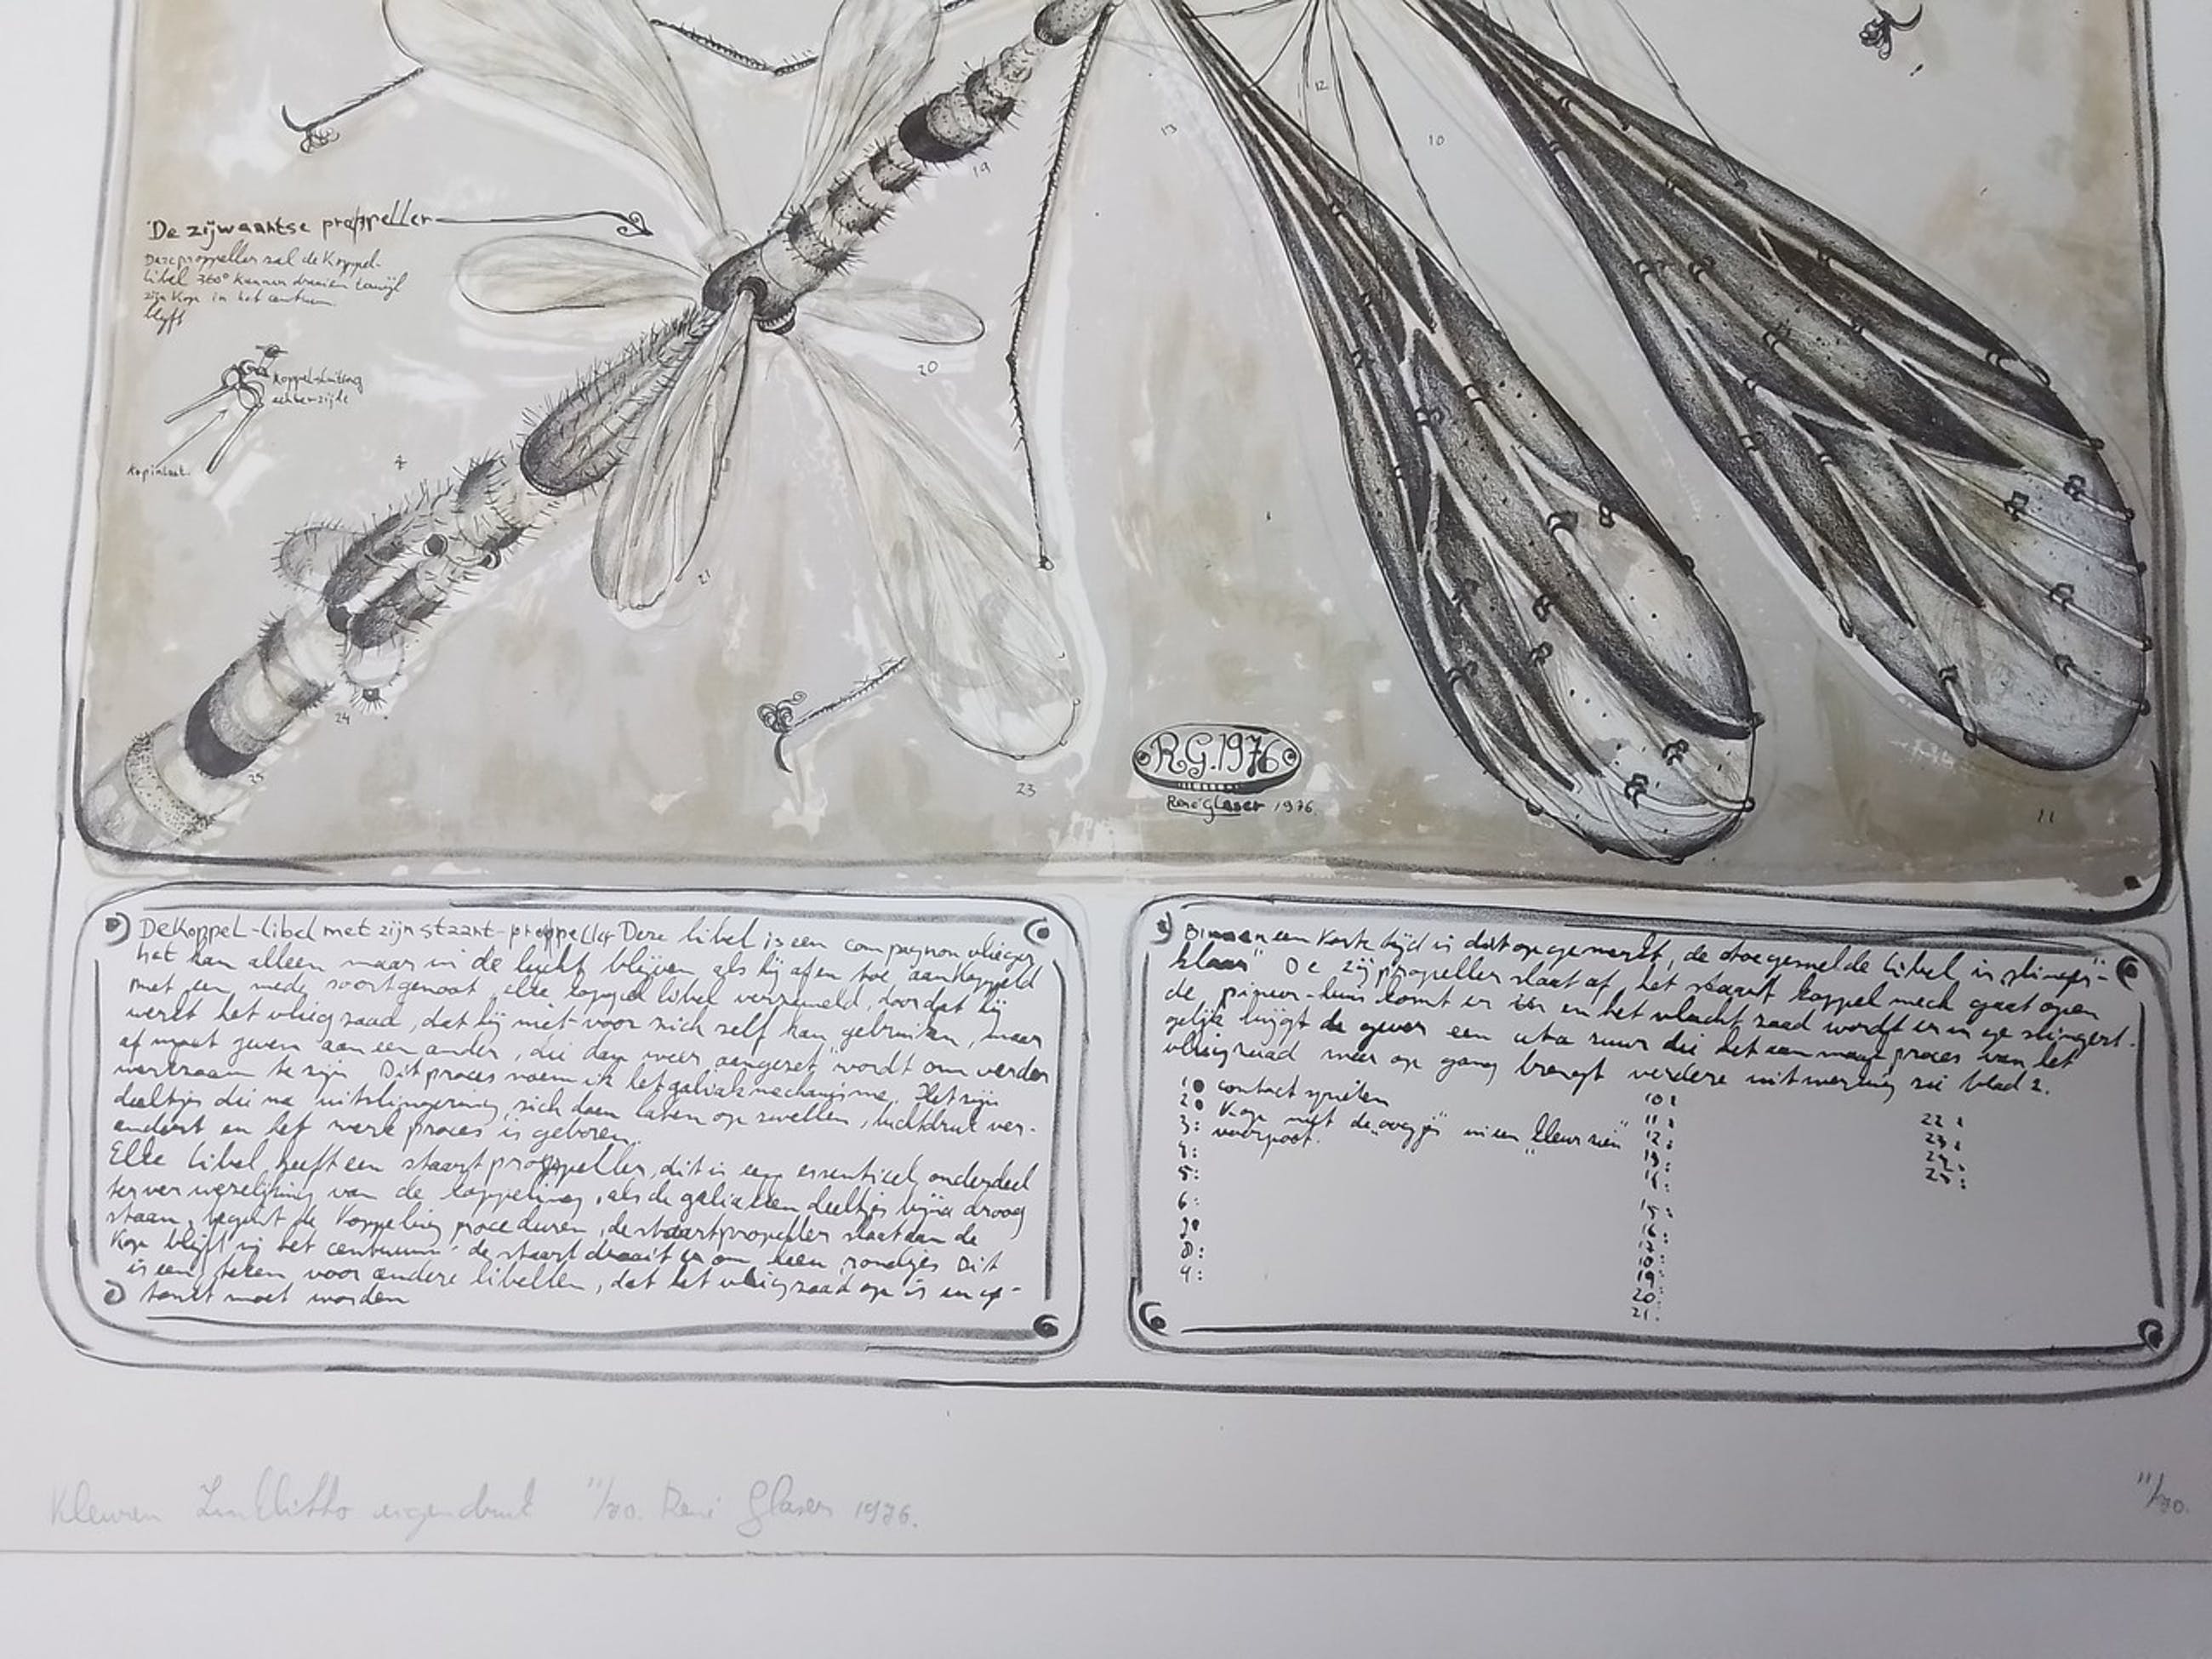 De zijwaartse proppeller
Deze proppeller zal de Koppel-
libel 360° kunnen draaien terwijl
zijn Kop in het centrum
blijft
Koppelsluiting
achterzijde
Kopinlaat
12
13
10
19
20
21
23
24
25
11
R.G. 1976
René Glaser 1976.
De Koppel-libel met zijn staart-proppeller Deze libel is een compagnon vlieger
het kan alleen maar in de lucht blijven, als hij af en toe aangekoppeld
met een mede soortgenoot, elke koppel libel verzameld, doordat hij
werkt het vliegzaad, dat hij niet voor zich zelf kan gebruiken, maar
af moet geven aan een ander, die dan weer "aangezet" wordt om verder
werkzaam te zijn. Dit proces noem ik het galiak mechanisme. Het zijn
deeltjes die na uitslingering, zich doen laten op zwellen, luchtdruk ver-
anderd en het werk proces is geboren.
Elke libel heeft een staartproppeller, dit is een essentieel onderdeel
ter verwezelijking van de koppeling, als de galiakken deeltjes bijna droog
staan, begint de Koppeling proceduren, de staartpropeller slaat aan de
Kop blijft in het centrum de staart draait er om heen, rondjes Dit
is een teken voor andere libellen, dat het vliegzaad op is en
moet worden
Binnen een Korte tijd is dit opgemerkt, de libel is
klaar" De zijpropeller slaat af, het staart koppel mech gaat open
de komt er in en het vlucht zaad wordt er in ge slingert.
gelijk krijgt de gever een zuur die het aanmaak proces van het
vliegzaad weer op gang brengt verdere uitwerking zie blad 2.
1: contact sprieten
2: Kop met de "oogjes" in een "kleur zien"
3: voorpoot.
4:
5:
6:
7:
8:
9:
10:
11:
12:
13:
14:
15:
16:
17:
18:
19:
20:
21:
22:
23:
24:
25:
Kleuren Litho eigendruk 11/70. René Glaser 1976.
11/70.